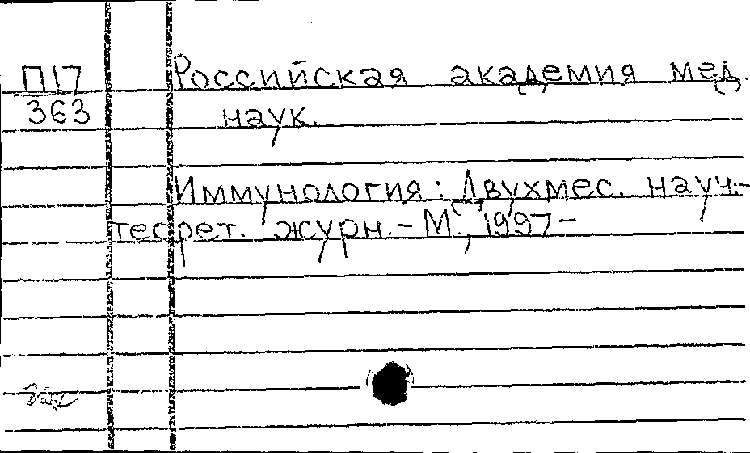 П17
363
Российская академия мед.
наук.
Иммунология: Двухмес. науч.-
теорет. журн. - М., 1997 -